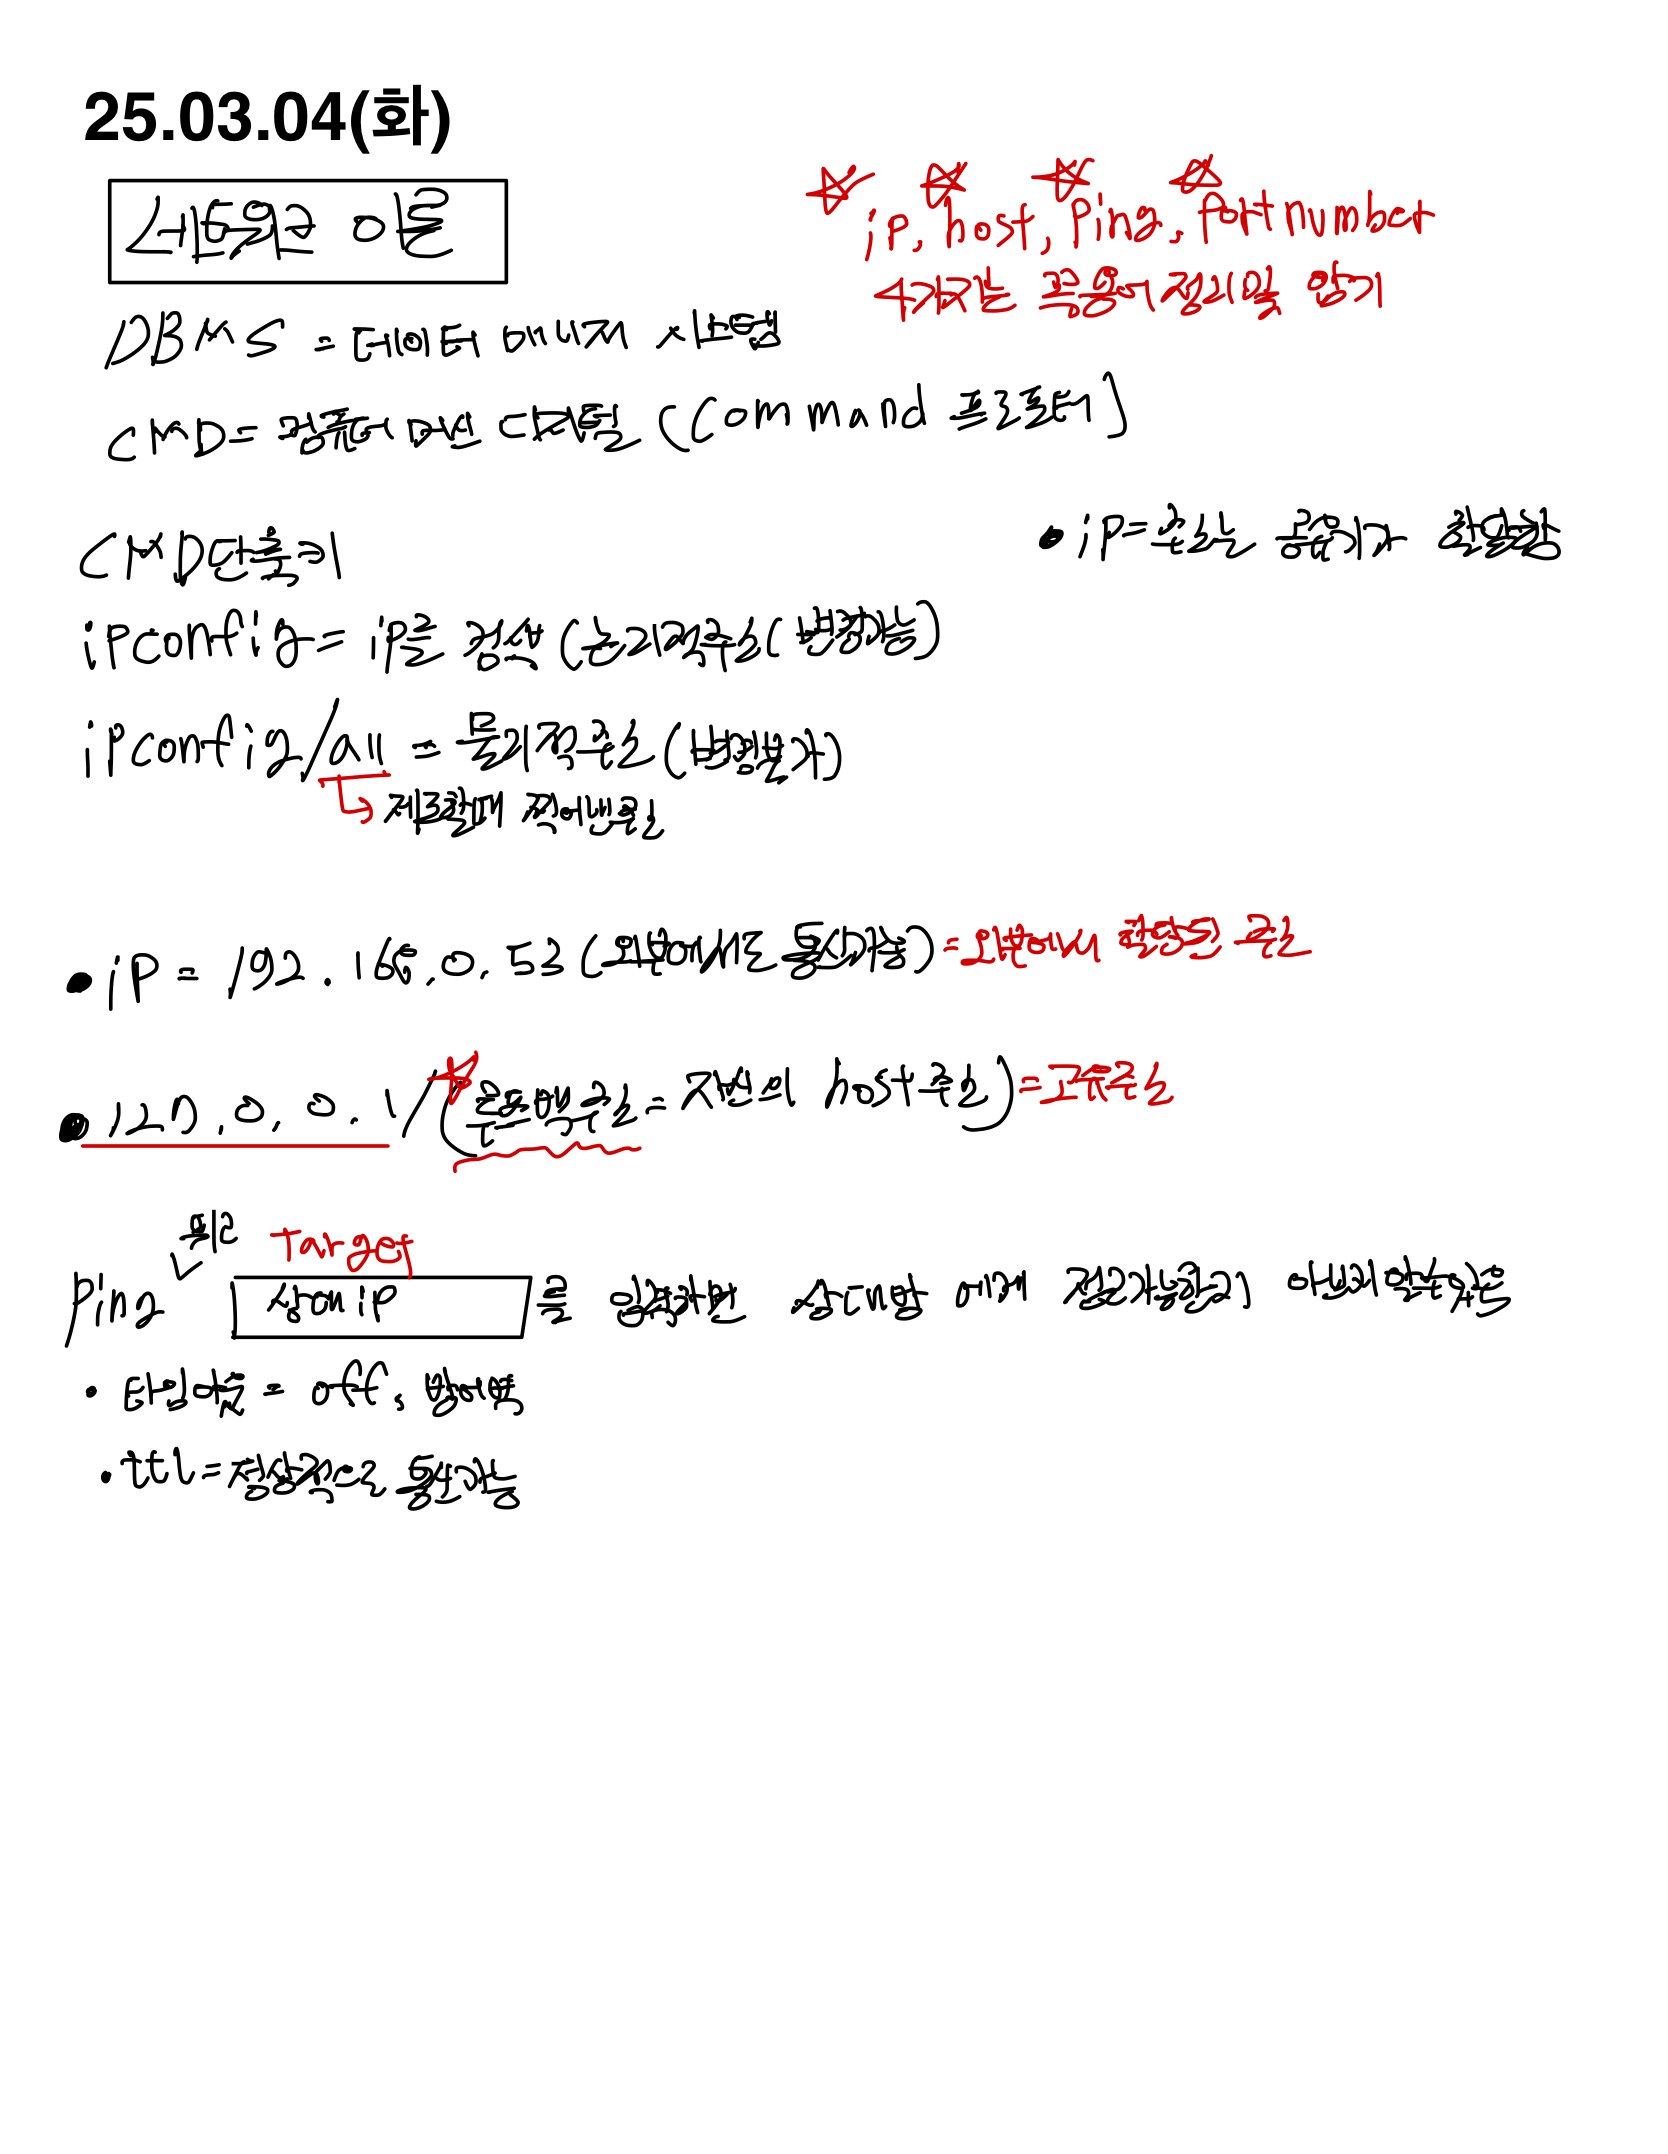 25.03.04(화)
네트워크 이론
ip, host, Ping, Port number
4가지는 꼭 용어정리 및 암기
DBMS = 데이터 매니저 시스템
CMD = 컴퓨터 머신 디지털 (Command 프롬프터)
CMD단축키
• ip = 주소는 공유기가 할당함
ipconfig = ip를 검색 (논리적주소 (변경가능)
ipconfig/all = 물리적주소 (변경불가)
제조할때 찍어낸주소
• ip = 192.168.0.53 (외부에서도 통신가능) = 외부에서 할당된 주소
• 127.0.0.1 / (루프백주소 = 자신의 host주소) = 고유주소
띄고
Target
Ping 상대 ip 를 입력하면 상대방 에게 접근가능한지 아닌지알수있음
• 타임아웃 = off, 방화벽
• ttl = 정상적으로 통신가능